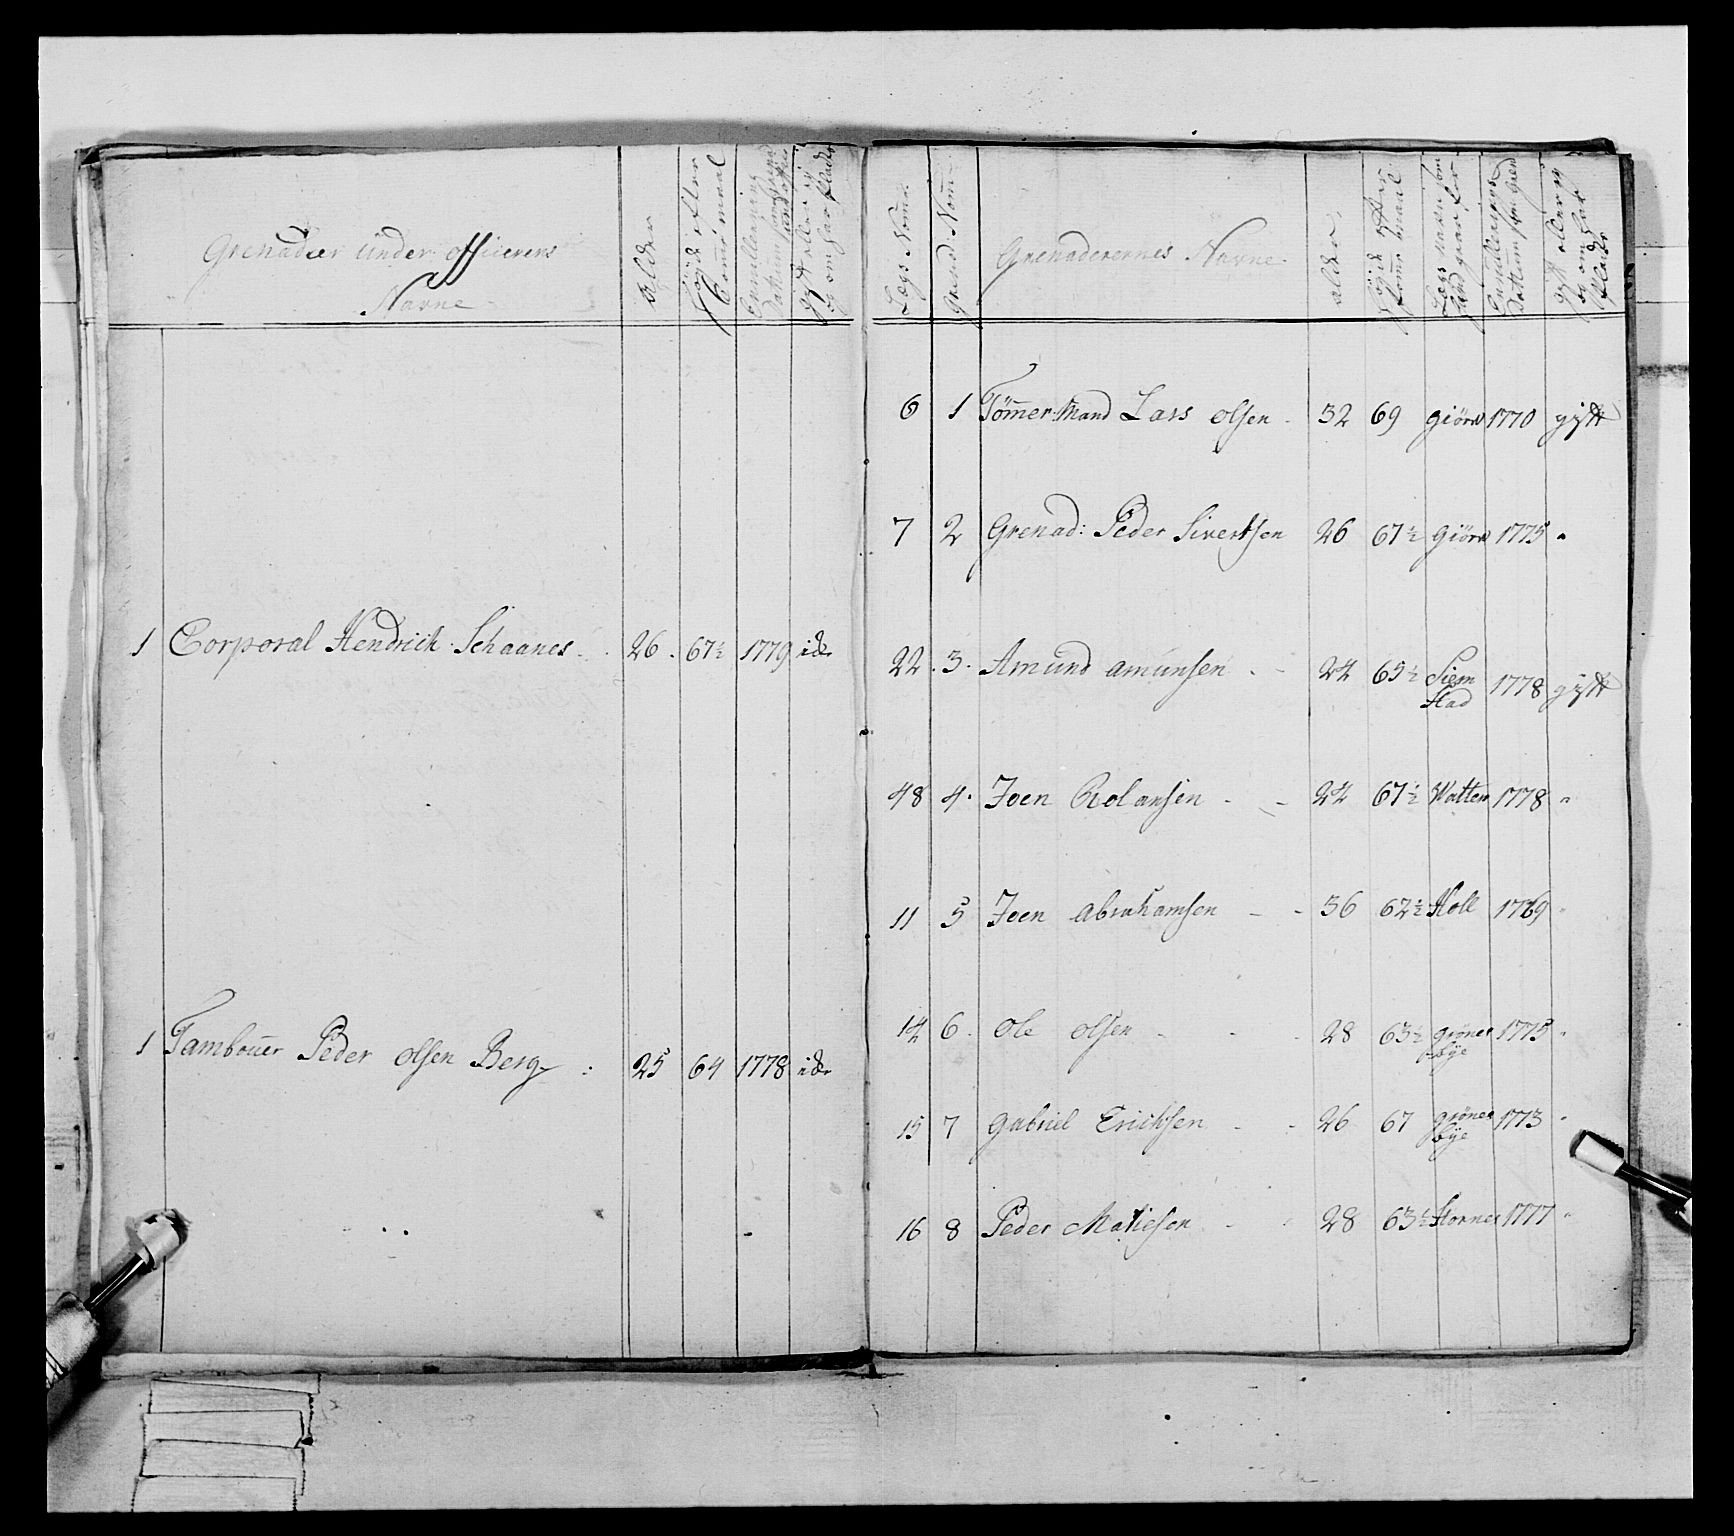 Grenadeer under officerens
Navne
Alder
1 Corporal Hendrich Schaanes 26 67½ 1779 id.
1 Tambouer Peder olsen Berg 25 64 1778 id.
Lægs Nom
Grenaderernes Navne
alder
6 1 Tømmer Mand Lars olsen 32 69 giörv 1770 gift
7 2 Grenad: Peder Sivertsen 26 67½ giörv 1775 "
22 3 Amund amunsen 24 65½ Siem stad 1778 gift
48 4 Joen Rolansen 24 67½ Watten 1778 "
11 5 Joen abrahamsen 36 62½ Holl 1769 "
14 6 Ole olsen 28 63½ gröner bÿe 1775 "
15 7 gabriel Erichsen 26 67 gröner bÿe 1773 "
16 8 Peder Matiesen 28 63½ Hornes 1777 "